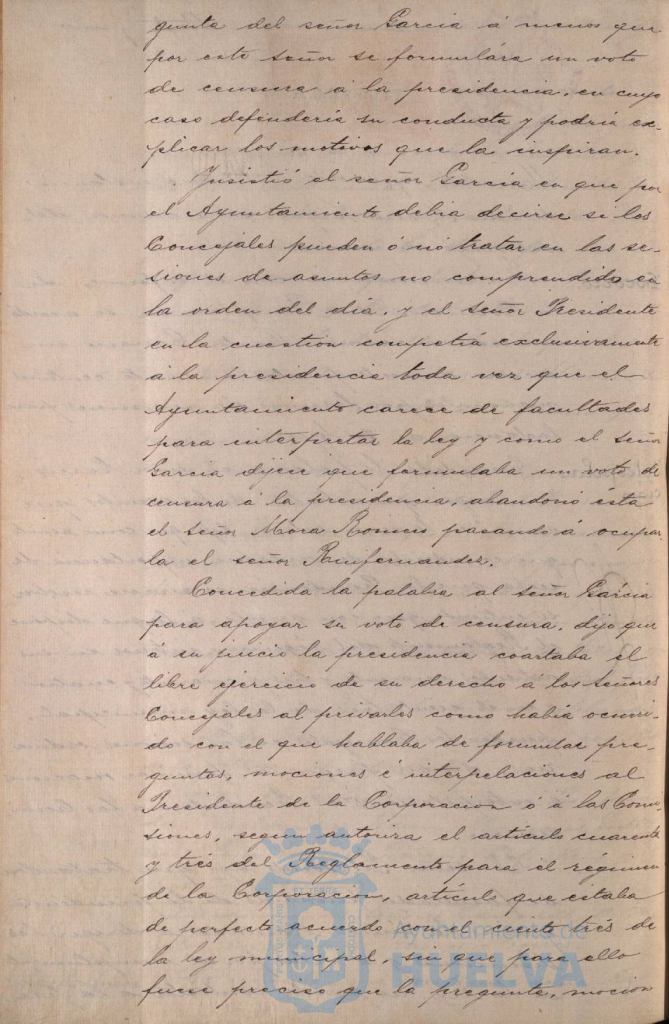 gunta del señor Garcia á menos que
por este señor se formulára un voto
de censura á la presidencia, en cuyo
caso defenderia su conducta y podria ex-
plicar los motivos que la inspiran.
Insistió el señor Garcia en que por
el Ayuntamiento debia decirse si los
Concejales pueden ó nó tratar en las se-
siones de asuntos no comprendidos en
la orden del dia, y el señor Presidente
en la cuestion competia exclusivamente
á la presidencia toda vez que el
Ayuntamiento carece de facultades
para interpretar la ley y como el señor
Garcia dijese que formulaba un voto de
censura á la presidencia, abandonó ésta
el señor Mora Romero pasando á ocupar
la el señor Ruifernandez.
Concedida la palabra al señor Garcia
para apoyar su voto de censura, dijo que
á su juicio la presidencia coartaba el
libre ejercicio de su derecho á los señores
Concejales al privarles como habia ocurri-
do con el que hablaba de formular pre-
guntas, mociones é interpelaciones al
Presidente de la Corporacion ó á las Comi
siones, segun autoriza el artículo cuarenta
y tres del Reglamento para el régimen
de la Corporacion, artículo que estaba
de perfecto acuerdo con el ciento tres de
la ley municipal, sin que para ello
fuese preciso que la pregunta, mocion
Ayuntamiento de
HUELVA